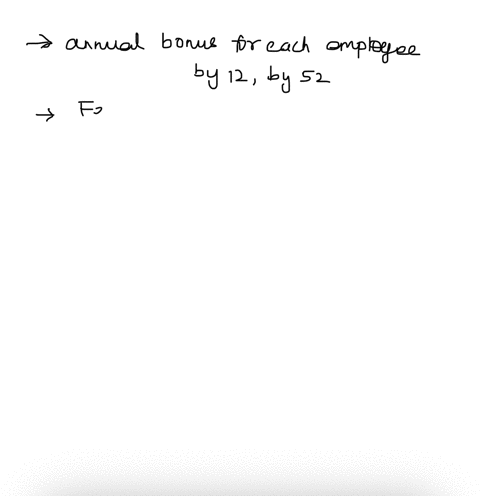 → annual bonus for each employee
by 12, by 52
→ Fo